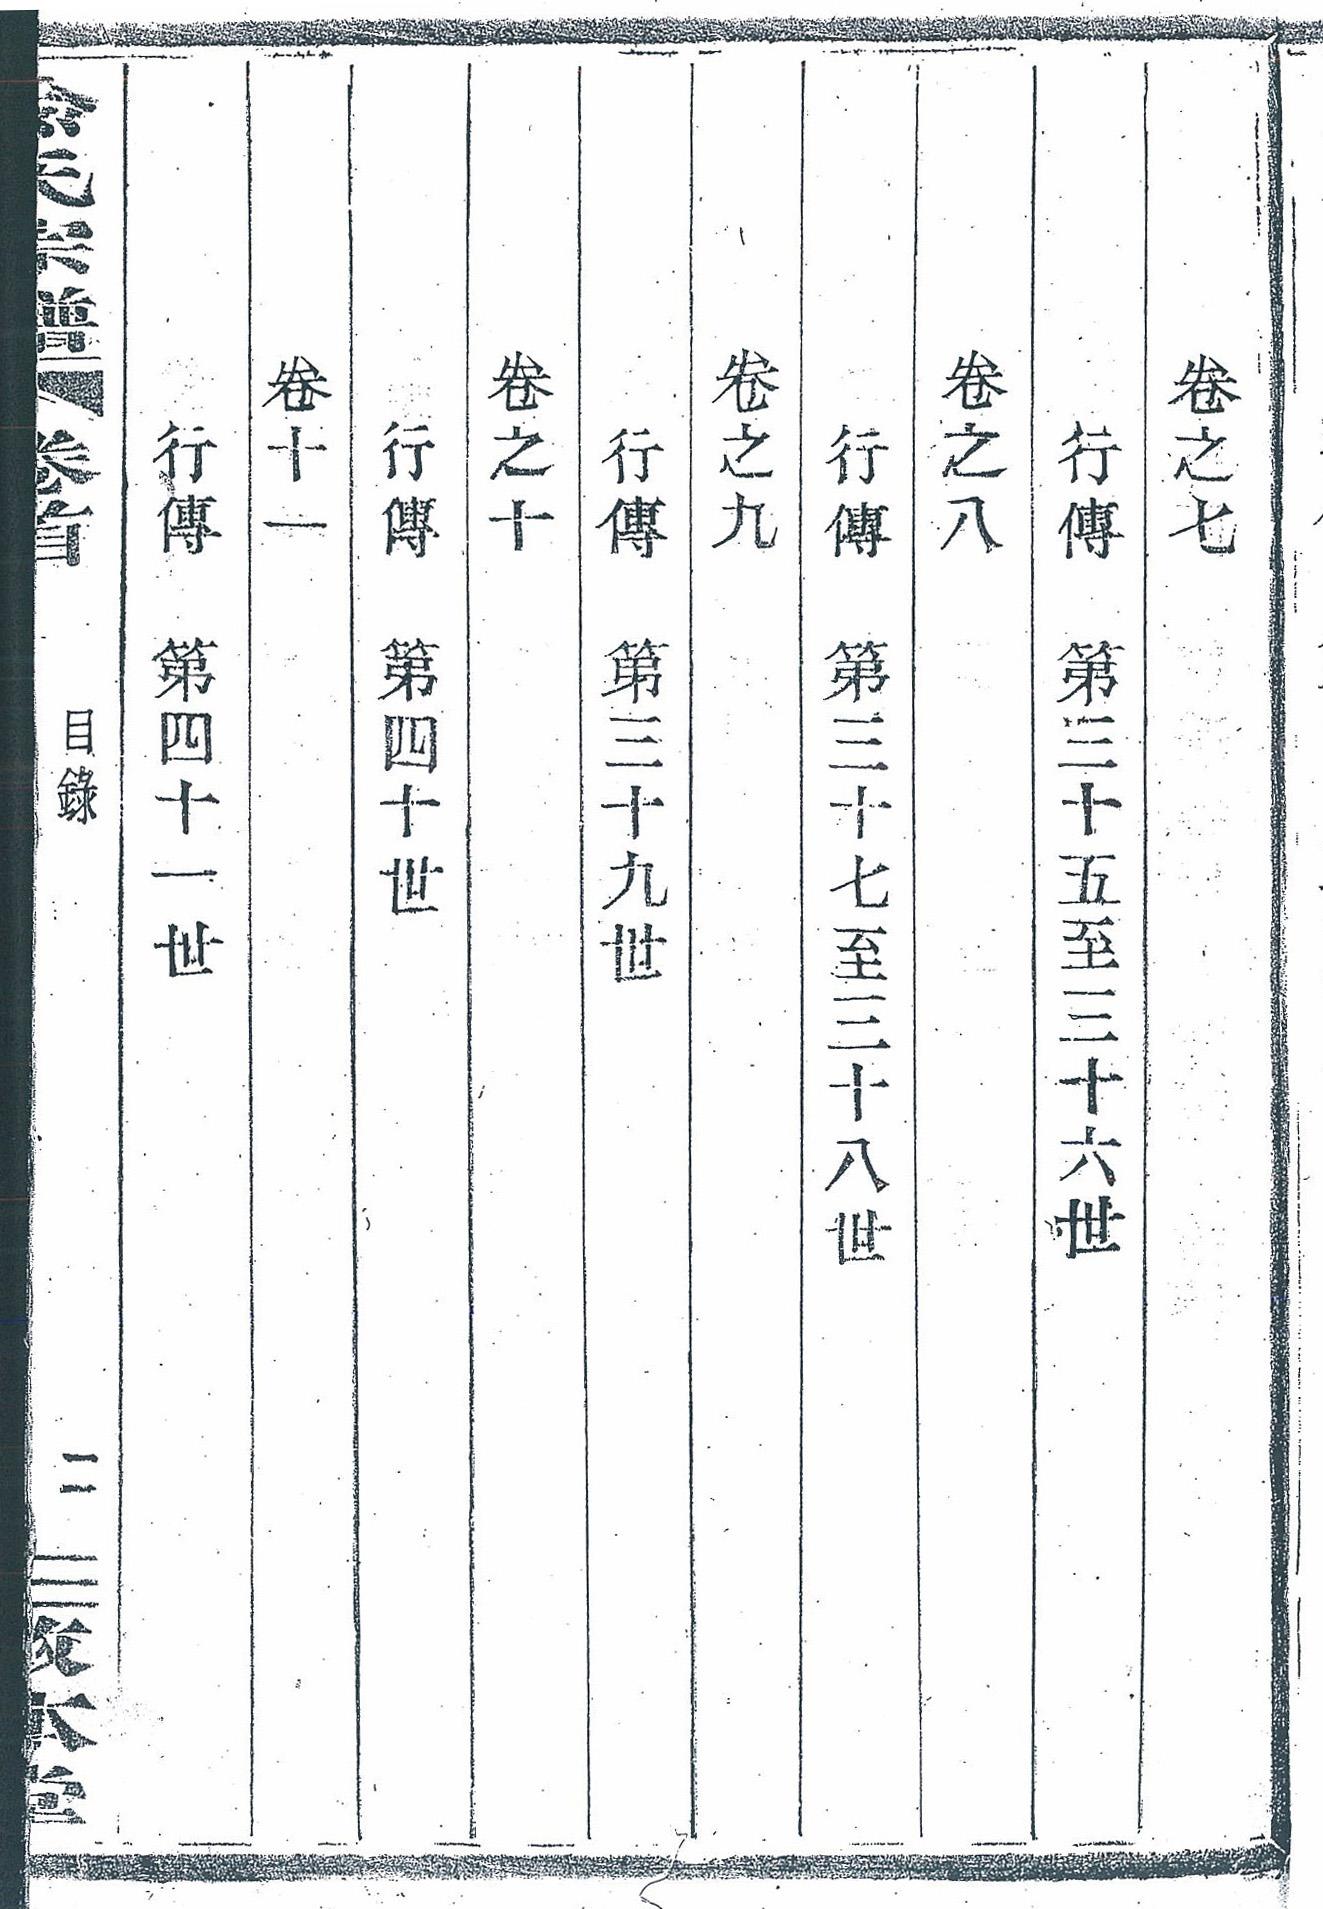 卷之七
行傳　第三十五至三十六世
卷之八
行傳　第三十七至三十八世
卷之九
行傳　第三十九世
卷之十
行傳　第四十世
卷十一
行傳　第四十一世
氏宗譜 卷首 目錄 二 本堂